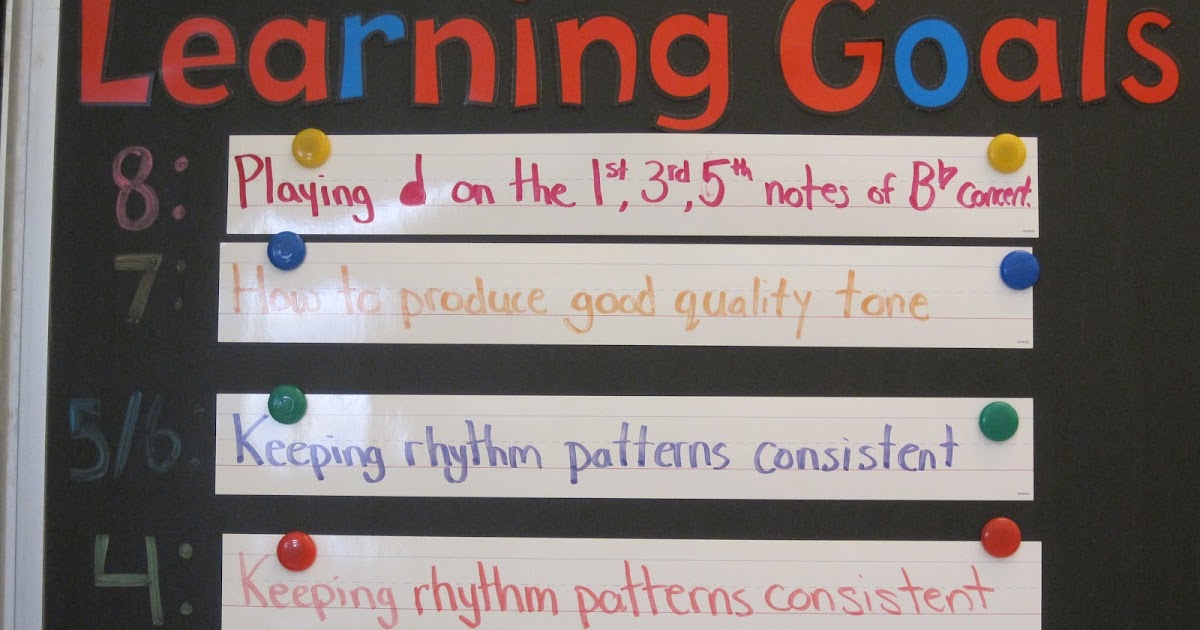 Learning Goals
8: Playing ♩ on the 1st, 3rd, 5th notes of B♭ Concert.
7: How to produce good quality tone
5/6: Keeping rhythm patterns consistent
4: Keeping rhythm patterns consistent